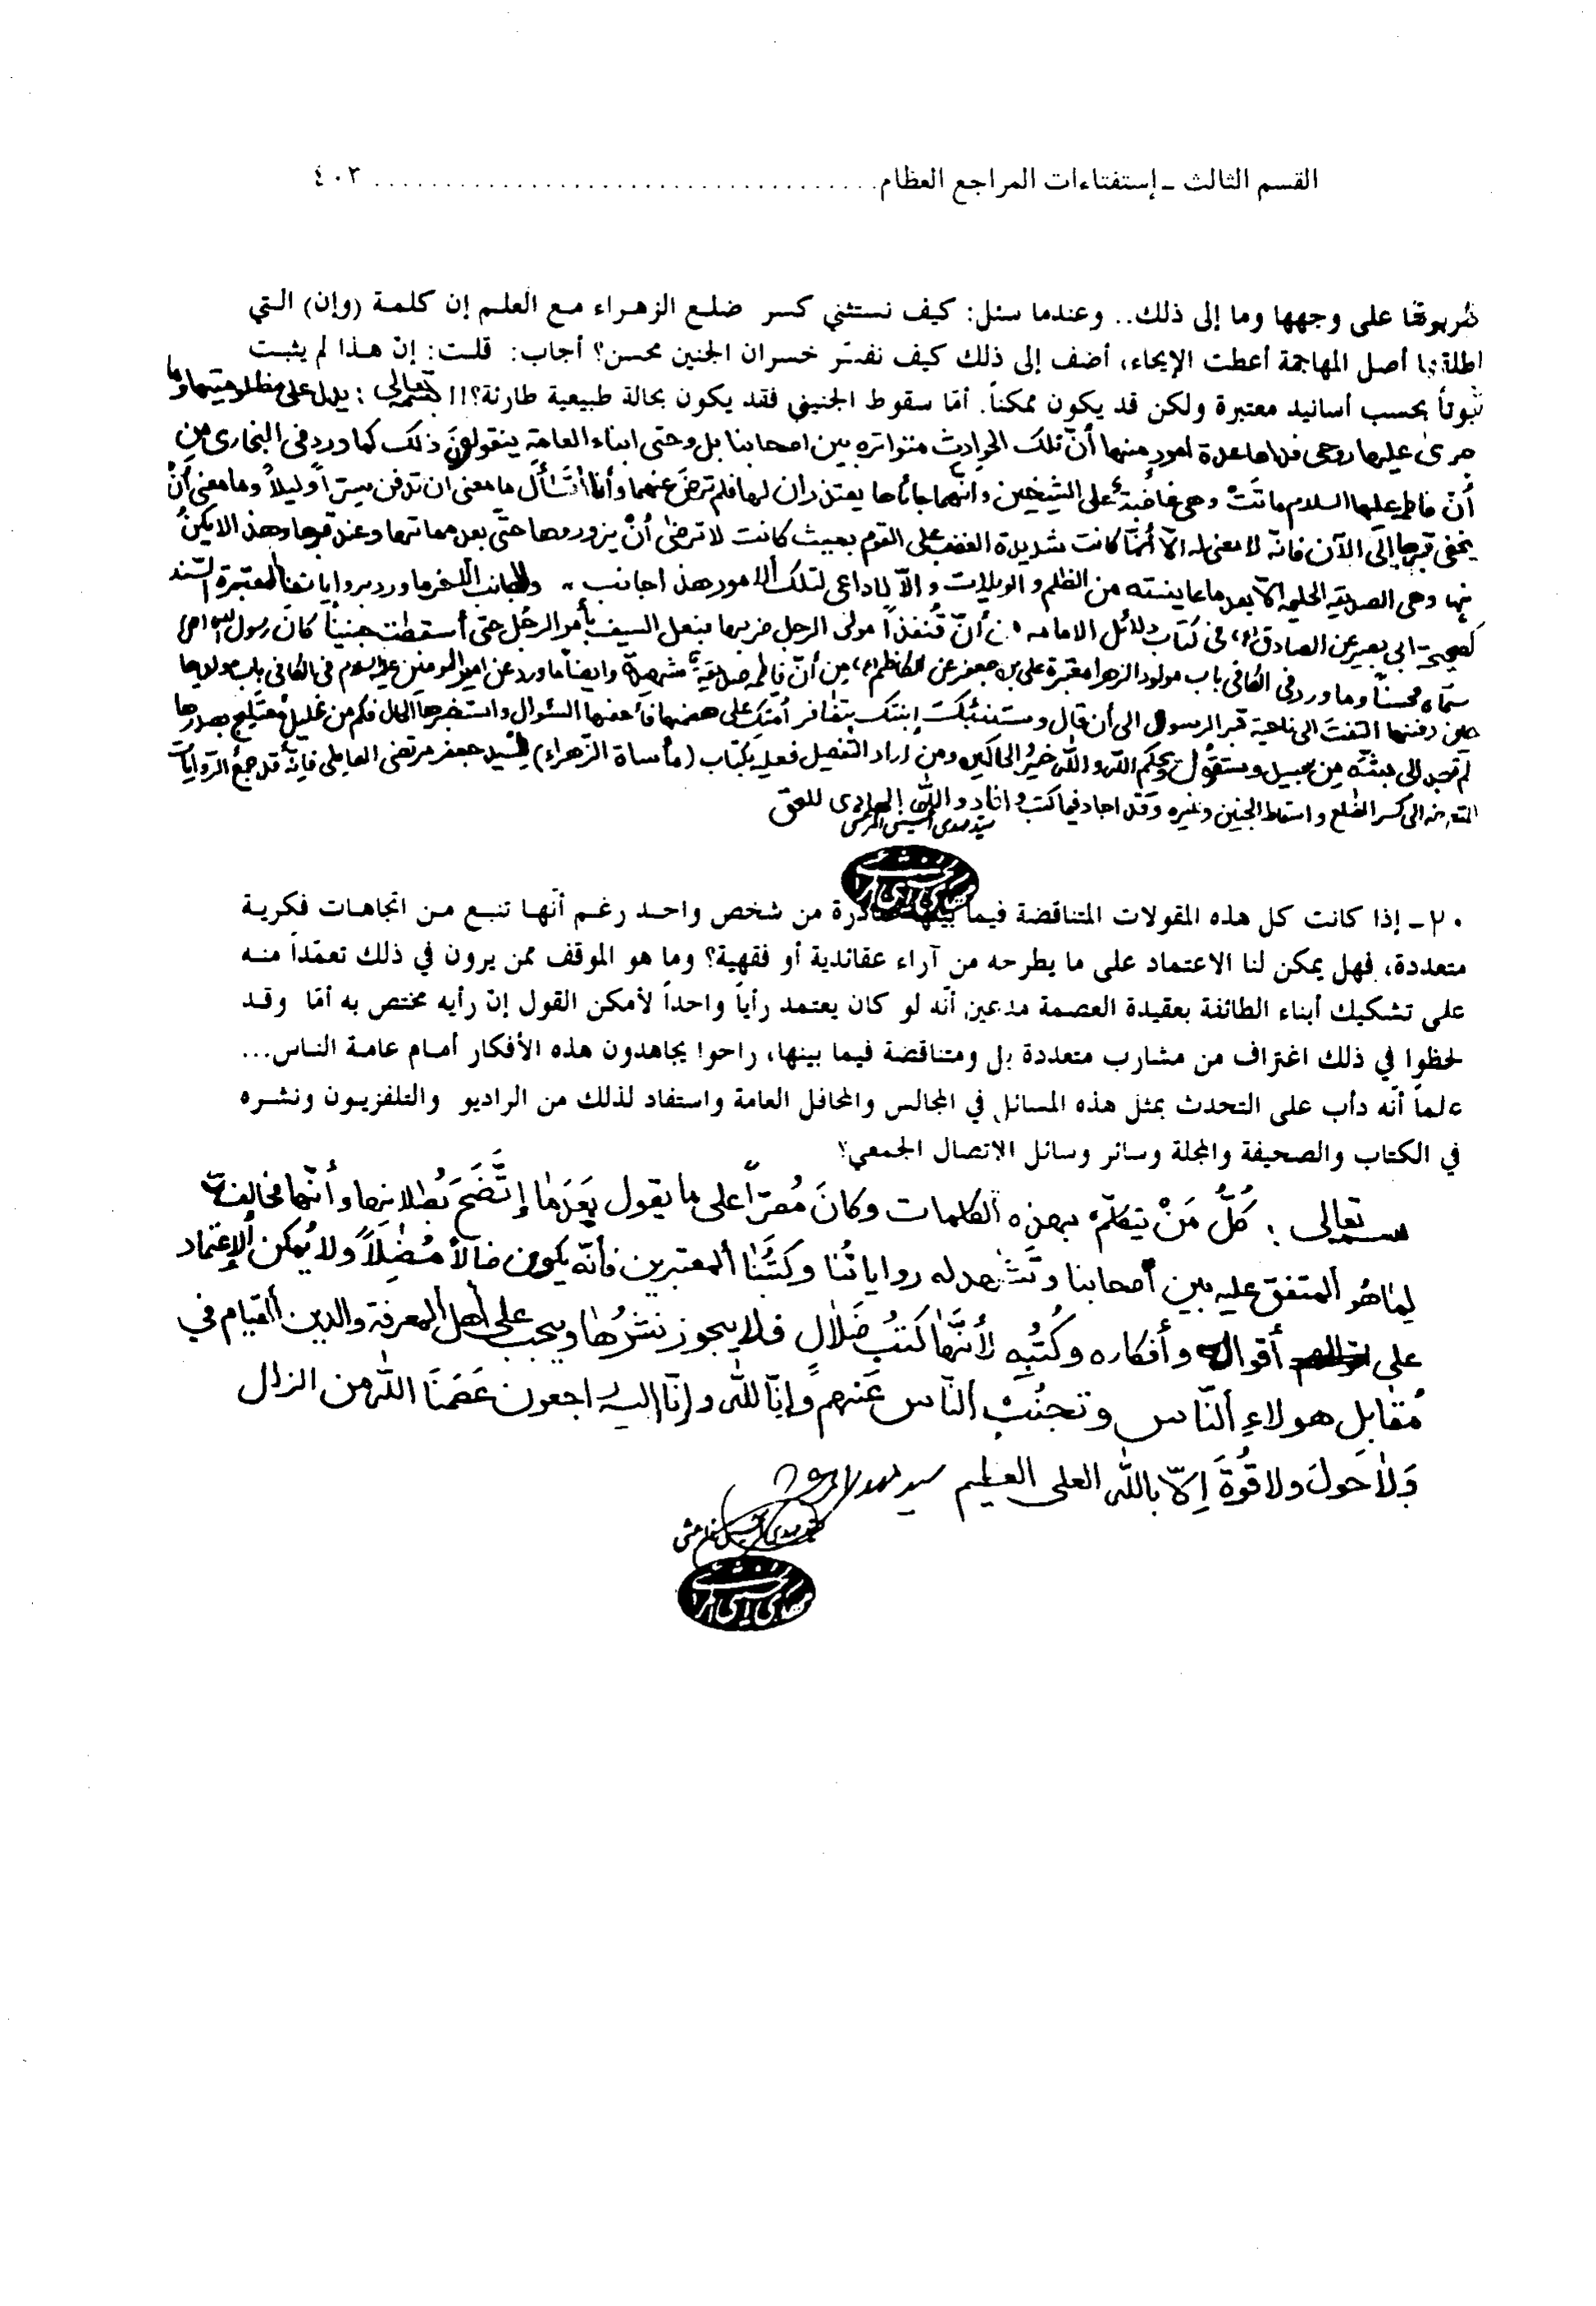 القسم الثالث ـ إستفتاءات المراجع العظام ................................... ٤٠٣
على وجهها وما إلى ذلك.. وعندما سئل: كيف نستثني كسر ضلع الزهراء مع العلم إن كلمة (وإن) التي
أصل المهاجمة أعطت الإيحاء، أضف إلى ذلك كيف نفسّر خسران الجنين محسن؟ أجاب: قلت: إنّ هذا لم يثبت
ثبوتاً بحسب أسانيد معتبرة ولكن قد يكون ممكناً. أمّا سقوط الجنيني فقد يكون بحالة طبيعية طارئة؟!! بسمه تعالى : يدل على مظلوميتها وما
جرى عليها روحي فداها عدة امور منها أنّ تلك الحوادث متواتره بين اصحابنا بل وحتى ابناء العامة ينقولون ذلك كما ورد في البخاري من
أن فاطمه عليها السلام ماتَتْ وهي غاضبة على الشيخين وانهما جاءاها يعتذران لها فلم ترضَ عنهما وأنا أتسأل ما معنى ان تدفن سراً وليلاً وما معنى أنْ
يخفى قبرها إلى الآن فانّه لا معنى له الّا أنّها كانت شديدة الغضب على القوم بحيث كانت لا ترضى أنْ يزوروها حتى بعد مماتها وعند قبرها وهذا لا يكنُ
منها وهي الصديقة الحليمه الّا بعد ما عاينته من الظلم والويلات والّا لا داعي لتلك الأمور هذا جانب ،، والجانب الآخر ما ورد بروايات المعتبرة السند
كصحيحة ابي بصير عن الصادق (ع) في كتاب دلائل الامامه من أنّ قُنفذاً مولى الرجل ضربها بنعل السيف بأمر الرجُل حتى أسقطت جنيناً كانَ رسول الله (ص)
سمّاه محسناً وما ورد في الكافي باب مولد الزهراء معتبرة علي بن جعفر عن الكاظم (ع) من أنّ فاطمه صديقة شهيدة وايضاً ما ورد عن امير المومنين عليه السلام في الكافي باب مولدها
حين دفنها التفت الى ناحية قبر الرسول الى أن قال وستنبئك إبنتك بتظافر أمتك على هضمها فأحفها السئوال واستخبرها الحال فكم من غليل معتلج بصدرها
لم تجد الى بثّه من سبيل وستقول ويحكم الله والله خير الحاكمين ومن اراد التفصيل فعليه بكتاب (مأساة الزهراء) للسيد جعفر مرتضى العاملي فإنّه قد جمع الروايات
الى كسر الضلع واسقاط الجنين وغيره وقد اجاد فيما كتب وافاد والله الهادي للحق
سيد مهدي الحسيني المرعشي
٢٠ـ إذا كانت كل هذه المقولات المتناقضة فيما بينها صادرة من شخص واحد رغم أنّها تنبع من اتجاهات فكرية
متعددة، فهل يمكن لنا الاعتماد على ما يطرحه من آراء عقائدية أو فقهية؟ وما هو الموقف ممن يرون في ذلك تعمّداً منه
على تشكيك أبناء الطائفة بعقيدة العصمة مدعين أنّه لو كان يعتمد رأياً واحداً لأمكن القول إنّ رأيه مختص به أمّا وقد
لحظوا في ذلك اغتراف من مشارب متعددة بل ومتناقضة فيما بينها، راحوا يجاهدون هذه الأفكار أمام عامة الناس...
علماً أنّه دأب على التحدث بمثل هذه المسائل في المجالس والمحافل العامة واستفاد لذلك من الراديو والتلفزيون ونشره
في الكتاب والصحيفة والمجلة وسائر وسائل الاتصال الجمعي؟
بسمه تعالى : كُلُّ مَنْ يتكلّم بهذه الكلمات وكانَ مُصرّاً على ما يقول بَعْدَما إتَّضَحَ بُطلانها وأنّها مخالفة
لِما هُو المتفق عليه بين أصحابنا وتَشْهد له رواياتُنا وكُتُبُنا المعتبرين فأنّه يكون ضالاً مُضِلاً ولا يُمكن الإعتماد
على أقواله وأفكاره وكُتُبِه لأنَّها كتبُ ضَلالٍ فلا يجوز نشرُها ويجب على أهل المعرفة والدين القيام في
مُقابل هولاءِ النّاس وتجنُّب النّاس عَنهم وإنّا لله وإنّا إليه راجعون عَصَمَنَا الله من الزلل
وَلا حَولَ ولا قُوةَ إلّا بالله العلي العظيم سيد مهدي المرعشي
سيد مهدي الحسيني المرعشي